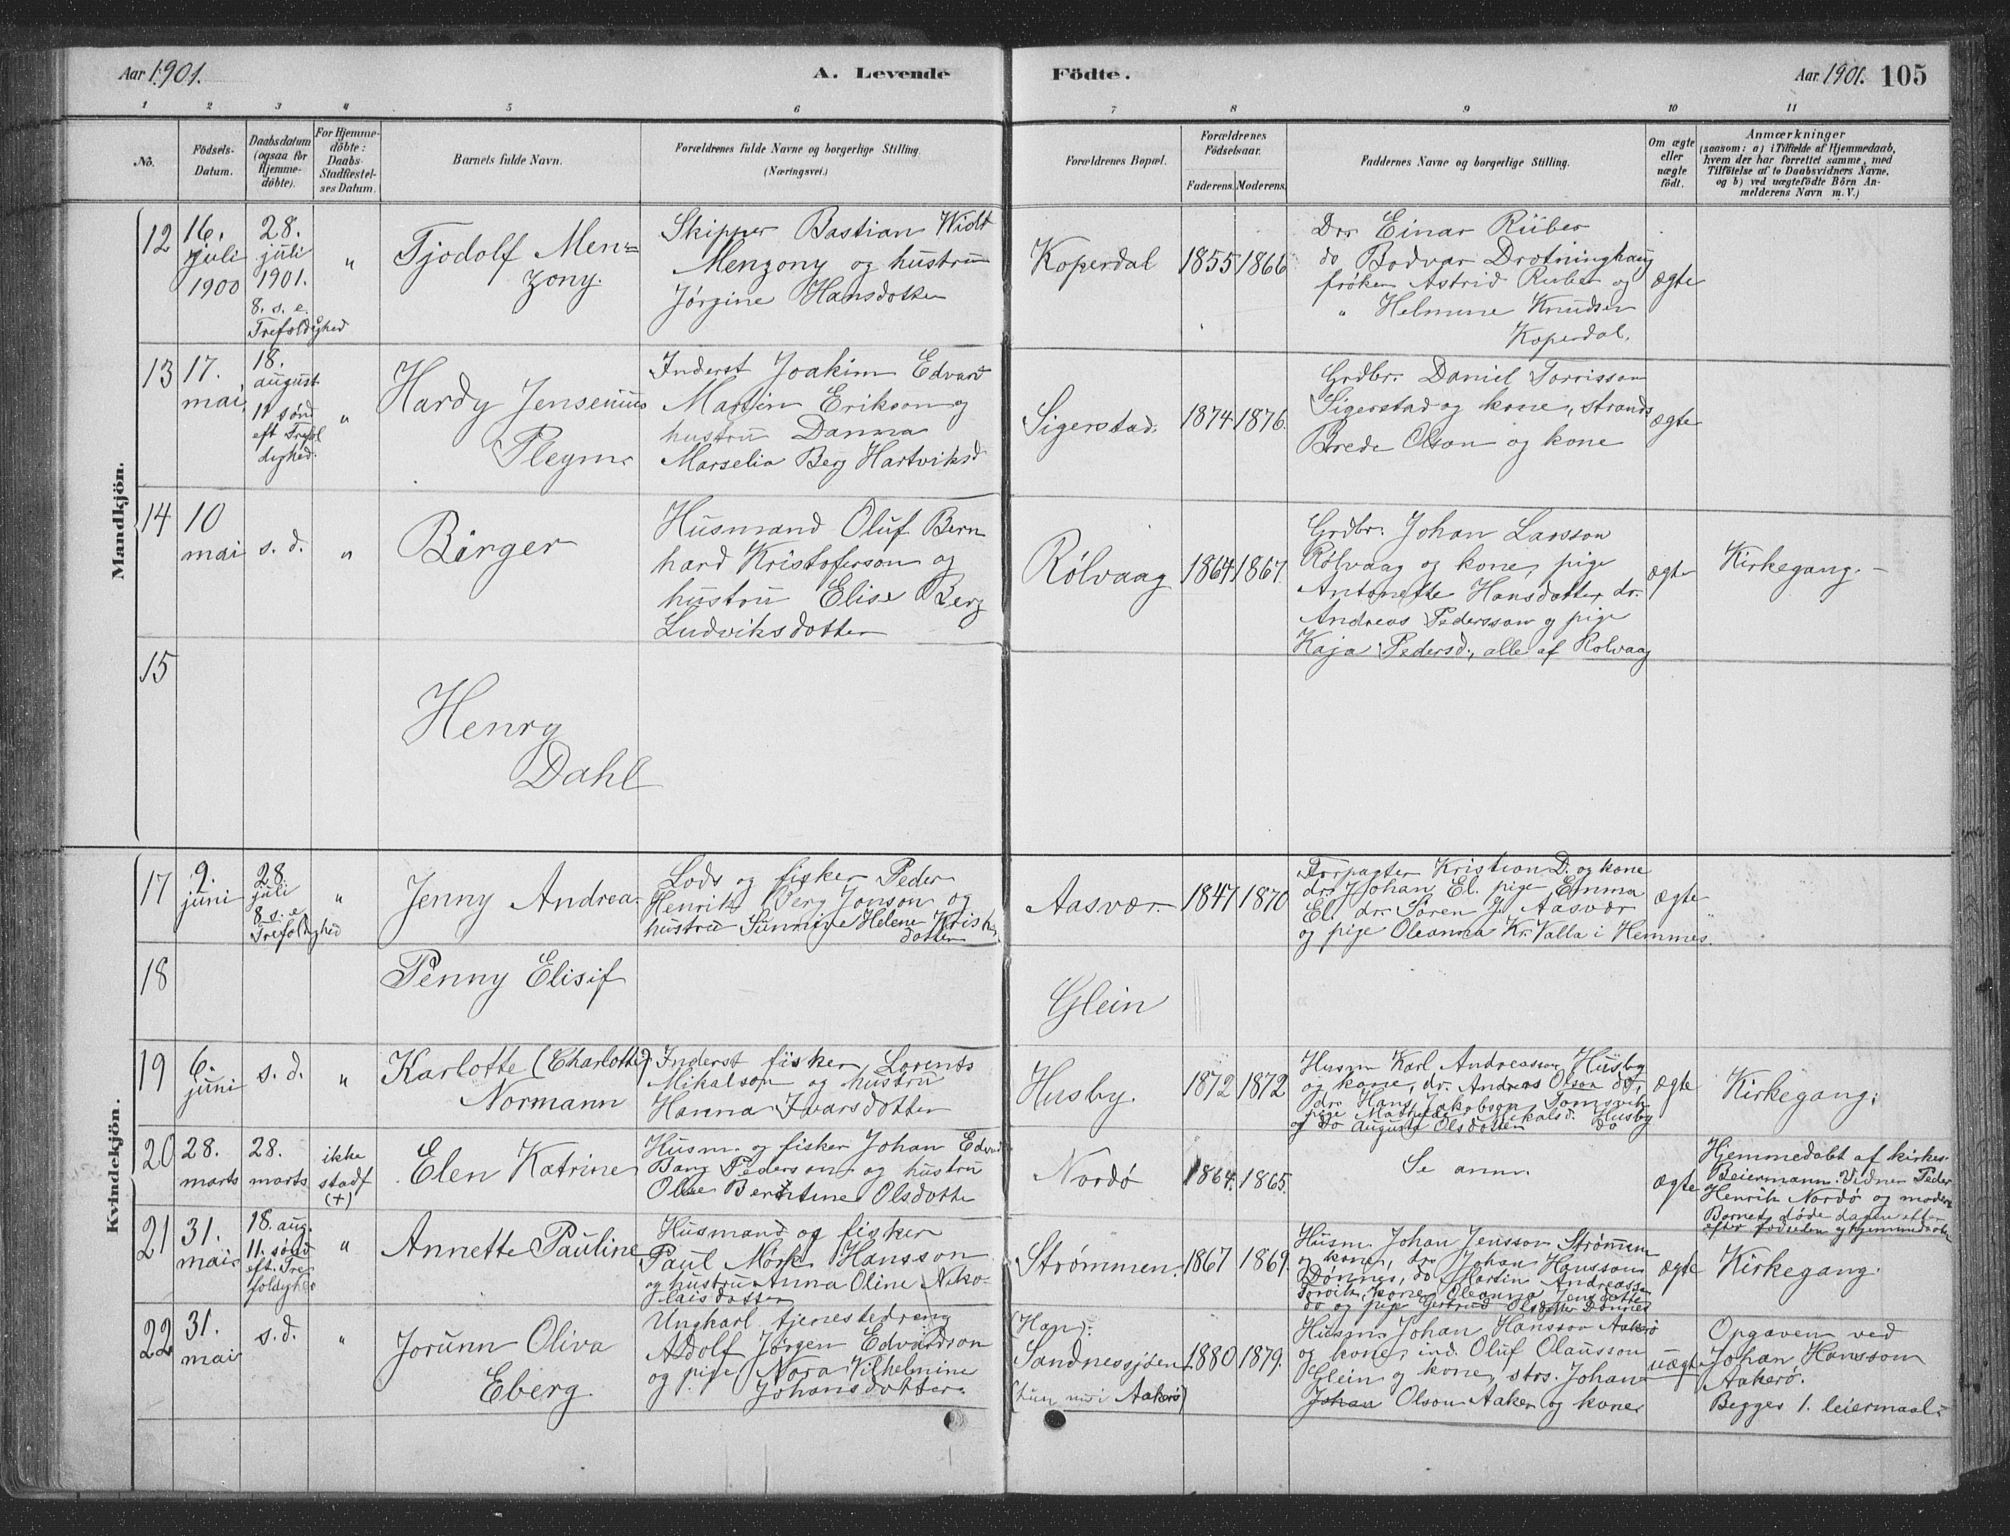 Aar 1901.
A. Levende
Födte.
Aar 1901. 105
1 2 3 4 5 6 7 8 9 10 11
No.
Födsels-
Datum.
Daabsdatum
(ogsaa for
Hjemme-
döbte).
For Hjemme-
döbte:
Daabs-
Stadfæstel-
ses Datum.
Barnets fulde Navn.
Forældrenes fulde Navne og borgerlige Stilling.
(Næringsvei.)
Forældrenes Bopæl.
Forældrenes
Födselsaar.
Faderens. Moderens.
Faddernes Navne og borgerlige Stilling.
Om ægte
eller
uægte
födt.
Anmærkninger
(saasom: a) i Tilfælde af Hjemmedaab,
hvem der har forrettet samme, med
Tilföielse af to Daabsvidners Navne,
og b) ved uægtefödte Börn An-
melderens Navn m. V.)
Mandkjön.
12
16.
juli
1900
28.
juli
1901.
8. s. e.
Trefoldighed
"
Tjodolf Men-
zony.
Skipper Bastian Widt
Menzony og hustru
Jørgine Hansdotter
Koperdal
1855 1866
Drr Einar Ruber
do Bodvar Drotninghaug
frøken Astrid Ruber og
" Helmine Knudsen
Koperdal.
ægte
13
17.
mai
18.
august
11 sønd
eft Trefol
dighed.
"
Hardy Jensenius
Pleym.
Inderst Joakim Edvard
Martin Erikson og
hustru Danna
Marselia Berg Hartviksd
Sigerstad.
1874 1876.
Grdbr. Daniel Torrisson
Sigerstad og kone, strands
Brede Olson og kone
ægte
14
10
mai
s. d.
"
Birger
Husmand Oluf Bern
hard Kristoferson og
hustru Elise Berg
Ludviksdotter
Rølvaag
1864. 1867.
Grdbr. Johan Larsson
Rølvaag og kone, pige
Antonette Hansdotter, dr.
Andreas Pedersson og pige
Kaja Pedersd., alle af Rolvaag
ægte
Kirkegang.
15
Henry
Dahl
Kvindekjön.
17
9.
juni
28.
juli
8. s. e
Trefoldighed
"
Jenny Andrea.
Lods og fisker Peder
Henrik Berg Jonson og
hustru Sunnive Helene Krist
dotter
Aasvær.
1847 1870
Forpagter Kristian D. og kone
dr. Johan El. pige Emma
El. dr. Søren J. Aasvær
og pige Oleanna Kr. Valla i Hemnes.
ægte
18
Penny Elisif
Glein
19
6.
juni
s. d.
"
Karlotte (Charlotte)
Normann
Inderst fisker Lorents
Mikalson og hustru
Hanna Ivarsdotter
Husby.
1872 1872
Husm Karl Andreassen Husby
og kone, dr. Andreas Olson do,
dr. Hans Jakobson Tomsvik
pige Mathilde Mikalsd. Husby
og do Augusta Olsdotter do
ægte
Kirkegang.
20
28.
marts
28.
marts
ikke
stadf
(+)
Elen Katrine
Husm. og fisker Johan Edvard
Bang Pederson og hustru
Oline Berntine Olsdotter
Nordø
1864. 1865.
Se anm.
ægte
Hjemmedøbt af kirkes.
Beiermann. Vidner Peder
Henrik Nordø og moderen
Barnet døde dagen efter
efter fødselen og hjemmedaab
21
31.
mai
18. aug.
11. sønd
eft. Tre
foldighed
"
Annette Pauline
Husmand og fisker
Paul Mørk Hansson
og hustru Anna Oline Niko-
laisdotter
Strømmen.
1867 1869.
Husm. Johan Jensson Strømmen
og kone, dr. Johan Hansson
Dønnes, do Martin Andreass
Torvik, kone Oleanna Jensdotter
do og pige Gertrud Olsdotter Dønnes
ægte
Kirkegang.
22
31.
mai
s. d.
"
Jorunn Oliva
Eberg.
Ungkarl tjenestedreng
Adolf Jørgen Edvardson
og pige Nora Vilhelmine
Johansdotter.
(Han):
Sandnessjøen
(hun nu i Aakerø)
1880 1879.
Husm. Johan Hansson Aakerø
og kone, ind. Oluf Olausson
Glein og kone, strs. Johan
Johan Olson Aaker og kone
uægte
Opgaven ved
Johan Hansson
Aakerø.
Begges 1. leiermaal.